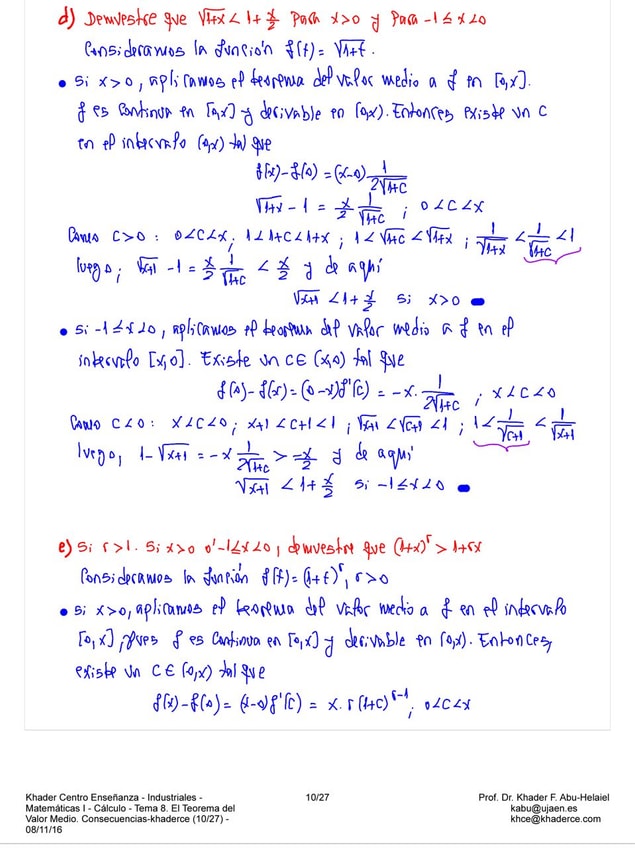 d) Demuestre que √1+x < 1+x/2 para x>0 y para -1≤x<0
Consideramos la función f(t)=√1+t.
• Si x>0, aplicamos el teorema del valor medio a f en [0,x].
f es continua en [0,x] y derivable en (0,x). Entonces, existe un c
en el intervalo (0,x) tal que
f(x)-f(0)=(x-0) 1/2√1+c
√1+x - 1 = x/2 1/√1+c ; 0<c<x
Como c>0: 0<c<x; 1<1+c<1+x; 1<√1+c<√1+x; 1/√1+x < 1/√1+c < 1
luego; √x+1 - 1 = x/2 1/√1+c < x/2 y de aquí
√x+1 < 1+x/2 si x>0
• Si -1≤x<0, aplicamos el teorema del valor medio a f en el
intervalo [x,0]. Existe un c∈(x,0) tal que
f(0)-f(x)=(0-x)f'(c) = -x. 1/2√1+c ; x<c<0
Como c<0: x<c<0; x+1<c+1<1; √x+1<√c+1<1; 1<1/√c+1<1/√x+1
luego, 1-√x+1 = -x 1/2√1+c > -x/2 y de aquí
√x+1 < 1+x/2 si -1≤x<0
e) Si r>1. Si x>0 o' -1≤x<0, demuestre que (1+x)^r > 1+rx
Consideramos la función f(t)=(1+t)^r, r>0
• Si x>0, aplicamos el teorema del valor medio a f en el intervalo
[0,x], pues f es continua en [0,x] y derivable en (0,x). Entonces,
existe un c∈(0,x) tal que
f(x)-f(0)=(x-0)f'(c) = x.r(1+c)^r-1; 0<c<x
Khader Centro Enseñanza - Industriales -
Matemáticas I - Cálculo - Tema 8. El Teorema del
Valor Medio. Consecuencias-khaderce (10/27) -
08/11/16
10/27
Prof. Dr. Khader F. Abu-Helaiel
kabu@ujaen.es
khce@khaderce.com